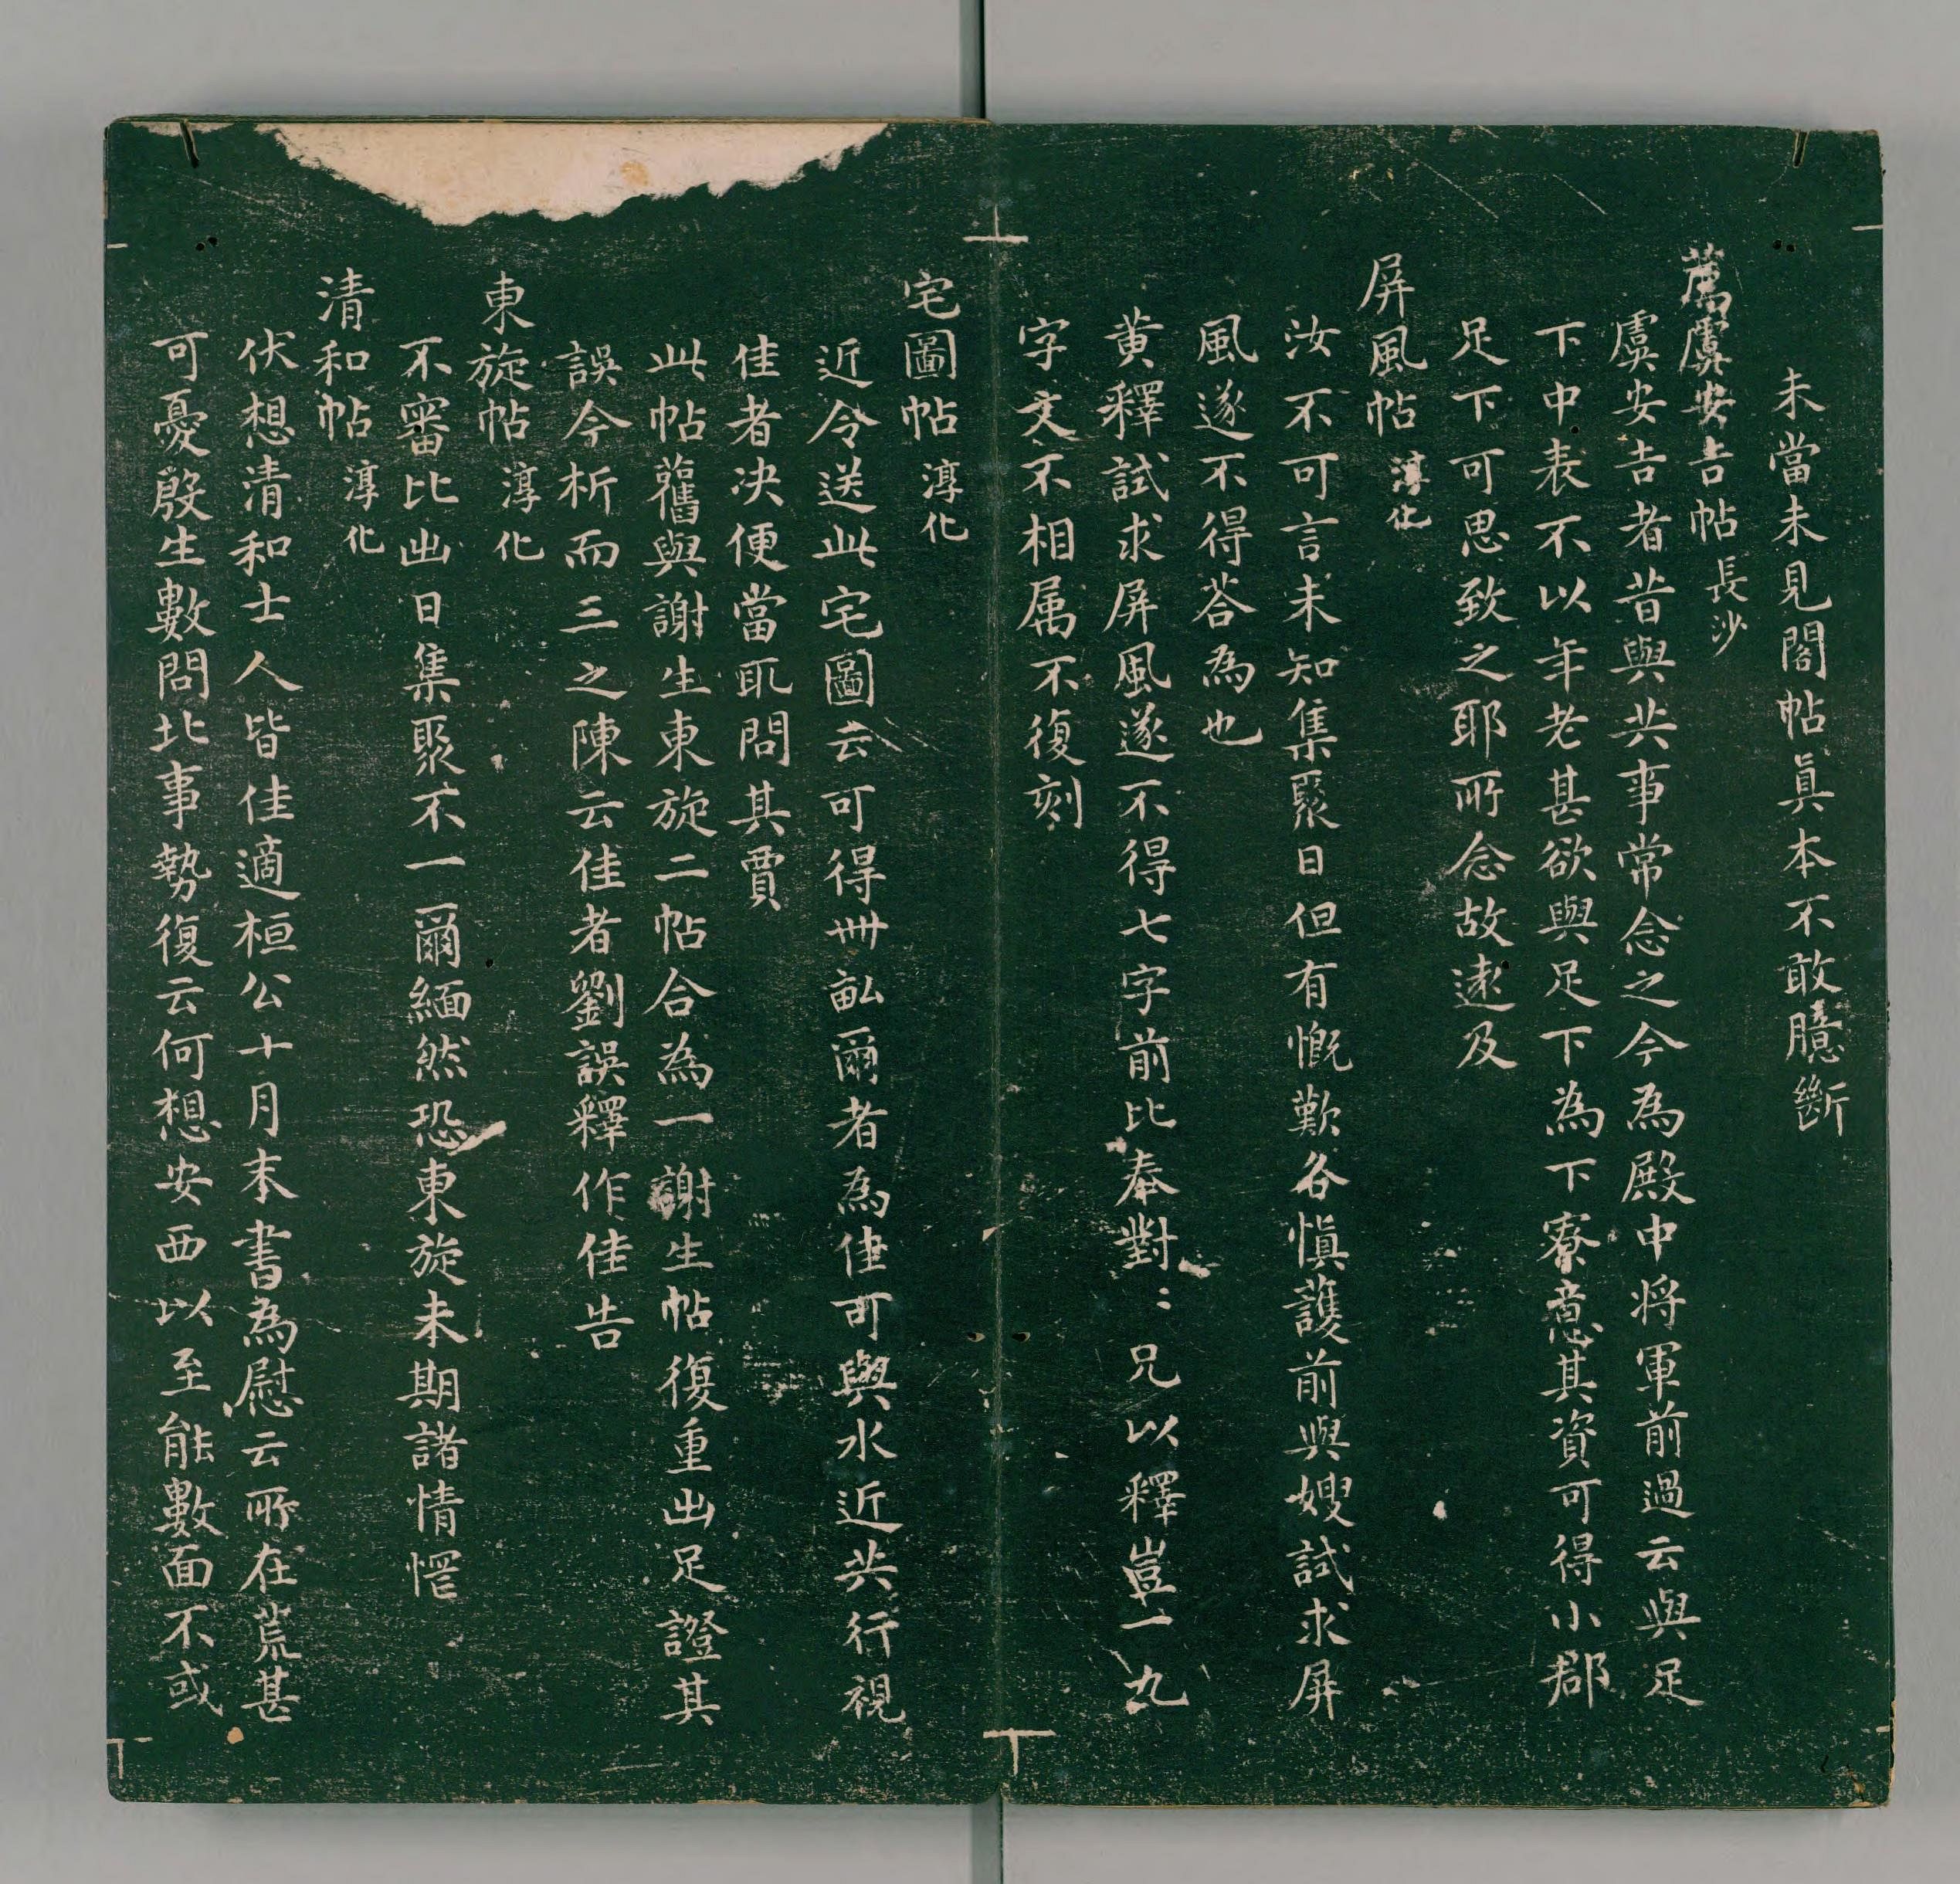 未當未見閣帖真本不敢臆斷
薦虞安吉帖 長沙
虞安吉者昔與共事常念之今為殿中將軍前過云與足
下中表不以年老甚欲與足下為下寮意其資可得小郡
足下可思致之耶所念故遠及
屏風帖 淳化
汝不可言未知集聚日但有慨歎各慎護前與嫂試求屏
風遂不得荅為也
黃釋試求屏風遂不得七字前比奉對〻兄以釋豈一九
字文不相属不復刻
宅圖帖 淳化
近令送此宅圖云可得卌畝爾者為佳可與水近共行視
佳者決便當取問其賈
此帖舊與謝生東旋二帖合為一謝生帖復重出足證其
誤今析而三之陳云佳者劉誤釋作佳告
東旋帖 淳化
不審比出日集聚不一爾緬然恐東旋未期諸情惘
清和帖 淳化
伏想清和士人皆佳適桓公十月末書為慰云所在荒甚
可憂殷生數問北事勢復云何想安西以至能數面不或